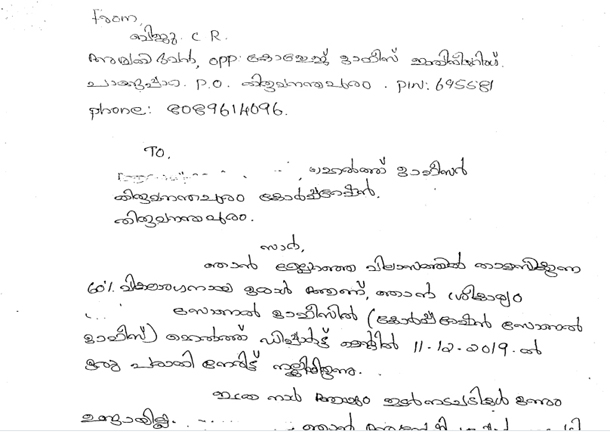 From,
ബിജു. C R.
opp: കോളേജ് ഓഫീസ്
P.O. തിരുവനന്തപുരം. PIN: 695581
phone: 8089614096.
TO,
ഹെൽത്ത് ഓഫീസർ
തിരുവനന്തപുരം കോർപ്പറേഷൻ.
തിരുവനന്തപുരം.
സാർ,
ഞാൻ മേല്പറഞ്ഞ വിലാസത്തിൽ താമസിക്കുന്ന
60% വികലാംഗനായ ഒരാൾ ആണ്. ഞാൻ ശ്രീകാര്യം
സോണൽ ഓഫീസിൽ (കോർപ്പറേഷൻ സോണൽ
ഓഫീസ്) ഹെൽത്ത് ഡിപ്പാർട്ട്മെന്റിൽ 11-12-2019-ൽ
ഒരു പരാതി നേരിട്ട് നല്കിയിരുന്നു.
ഇതേ നാൾ ആയും നടപടികൾ ഒന്നും
ഉണ്ടായില്ല. ഞാൻ